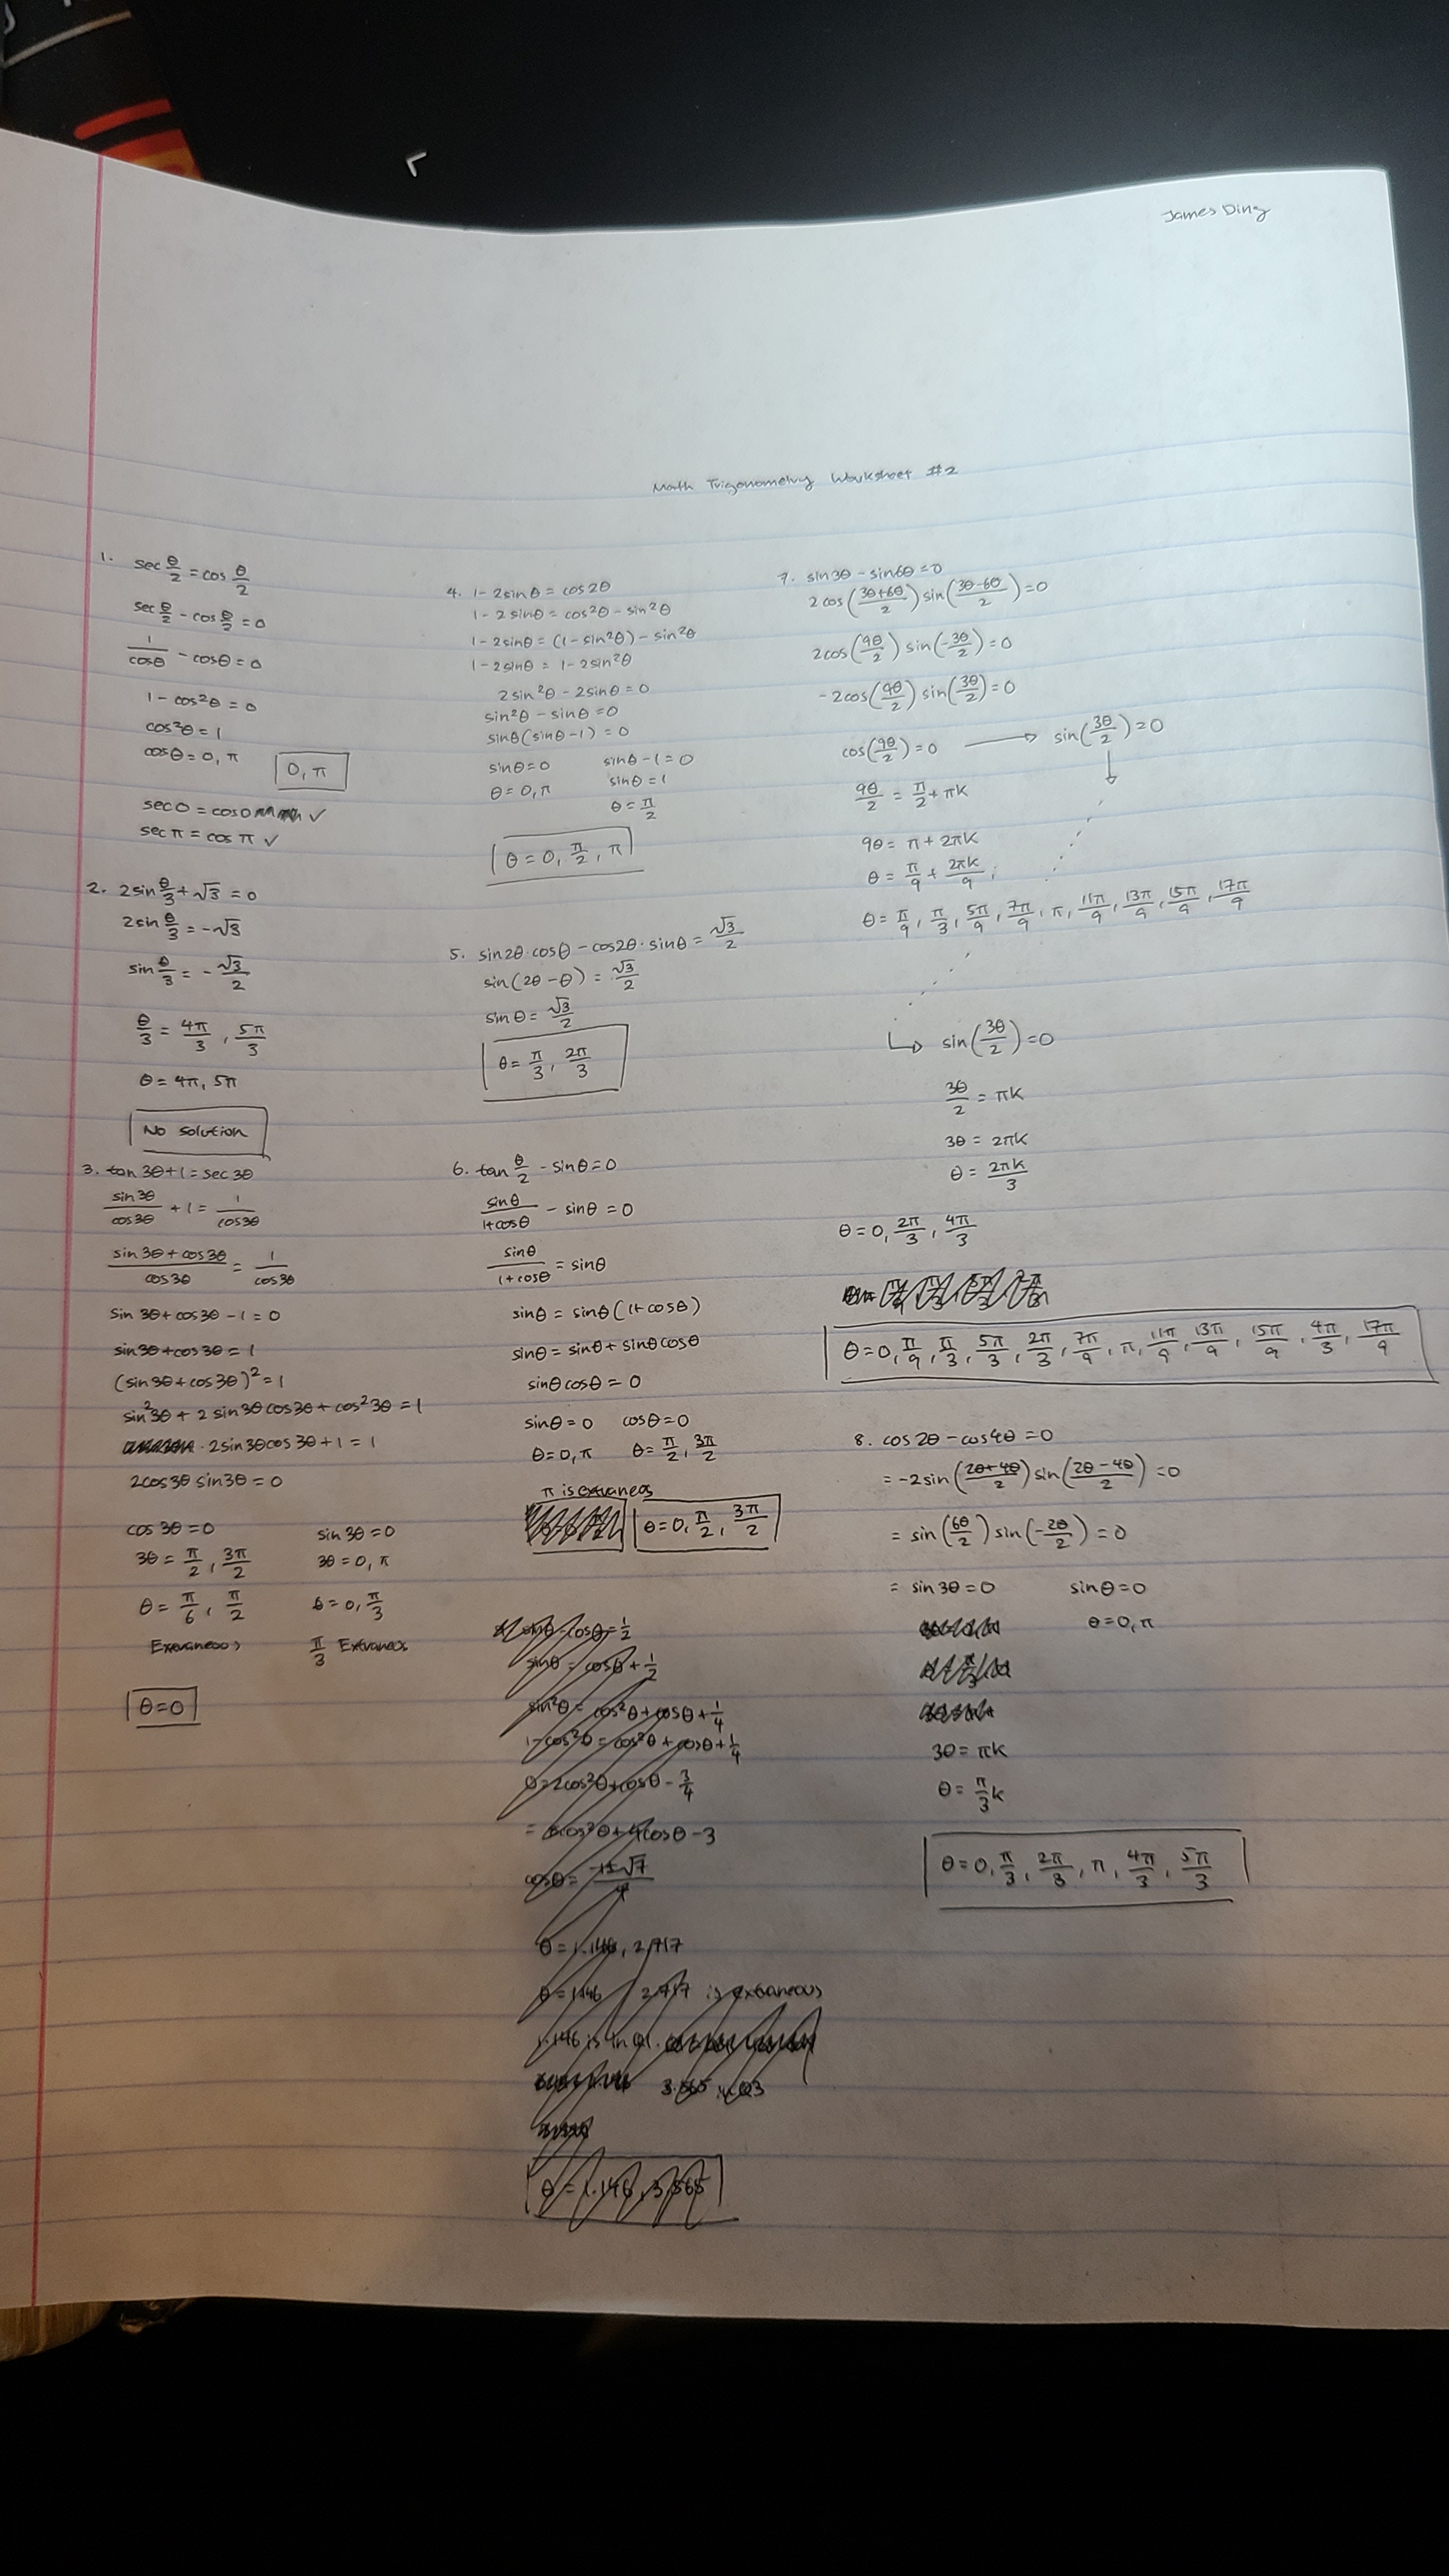 James Ding
Math Trigonometry Worksheet #2
1. sec θ/2 = cos θ/2
sec θ/2 - cos θ/2 = 0
1/cosθ - cosθ = 0
1 - cos²θ = 0
cos²θ = 1
cosθ = 0, π
0, π
sec 0 = cos 0 ✓
sec π = cos π ✓
2. 2sin θ/3 + √3 = 0
2sin θ/3 = -√3
sin θ/3 = -√3/2
θ/3 = 4π/3, 5π/3
θ = 4π, 5π
No solution
3. tan 3θ + 1 = sec 3θ
sin3θ/cos3θ + 1 = 1/cos3θ
(sin3θ + cos3θ)/cos3θ = 1/cos3θ
sin 3θ + cos3θ - 1 = 0
sin3θ + cos3θ = 1
(sin3θ + cos3θ)² = 1
sin²3θ + 2 sin3θ cos3θ + cos²3θ = 1
2sin3θcos3θ + 1 = 1
2cos3θ sin3θ = 0
cos3θ = 0 sin3θ = 0
3θ = π/2, 3π/2 3θ = 0, π
θ = π/6, π/2 θ = 0, π/3
π/3
θ = 0
4. 1 - 2sinθ = cos2θ
1 - 2sinθ = cos²θ - sin²θ
1 - 2sinθ = (1 - sin²θ) - sin²θ
1 - 2sinθ = 1 - 2sin²θ
2sin²θ - 2sinθ = 0
sin²θ - sinθ = 0
sinθ(sinθ - 1) = 0
sinθ = 0 sinθ - 1 = 0
θ = 0, π sinθ = 1
θ = π/2
θ = 0, π/2, π
5. sin2θ·cosθ - cos2θ·sinθ = √3/2
sin(2θ - θ) = √3/2
sinθ = √3/2
θ = π/3, 2π/3
6. tan θ/2 - sinθ = 0
sinθ/(1+cosθ) - sinθ = 0
sinθ/(1+cosθ) = sinθ
sinθ = sinθ(1+cosθ)
sinθ = sinθ + sinθcosθ
sinθcosθ = 0
sinθ = 0 cosθ = 0
θ = 0, π θ = π/2, 3π/2
π is extraneos
θ = 0, π/2, 3π/2
sinθ - cosθ = 1/2
sinθ = cosθ + 1/2
sin²θ = cos²θ + cosθ + 1/4
1 - cos²θ = cos²θ + cosθ + 1/4
0 = 2cos²θ + cosθ - 3/4
= 8cos²θ + 4cosθ - 3
θ = 1.146, 2.717
θ = 1.146 2.717 is extraneous
1.146 is in Q1.
3.565 in Q3
θ = 1.146, 3.565
7. sin3θ - sin6θ = 0
2cos((3θ+6θ)/2) sin((3θ-6θ)/2) = 0
2cos(9θ/2) sin(-3θ/2) = 0
-2cos(9θ/2) sin(3θ/2) = 0
cos(9θ/2) = 0 → sin(3θ/2) = 0
9θ/2 = π/2 + πk
9θ = π + 2πk
θ = π/9 + 2πk/9
θ = π/9, π/3, 5π/9, 7π/9, π, 11π/9, 13π/9, 15π/9, 17π/9
↳ sin(3θ/2) = 0
3θ/2 = πk
3θ = 2πk
θ = 2πk/3
θ = 0, 2π/3, 4π/3
θ = 0, π/9, π/3, 5π/3, 2π/3, 7π/9, π, 11π/9, 13π/9, 15π/9, 4π/3, 17π/9
8. cos2θ - cos4θ = 0
= -2sin((2θ+4θ)/2) sin((2θ-4θ)/2) = 0
= sin(6θ/2) sin(-2θ/2) = 0
= sin3θ = 0 sinθ = 0
θ = 0, π
3θ = πk
θ = π/3 k
θ = 0, π/3, 2π/3, π, 4π/3, 5π/3